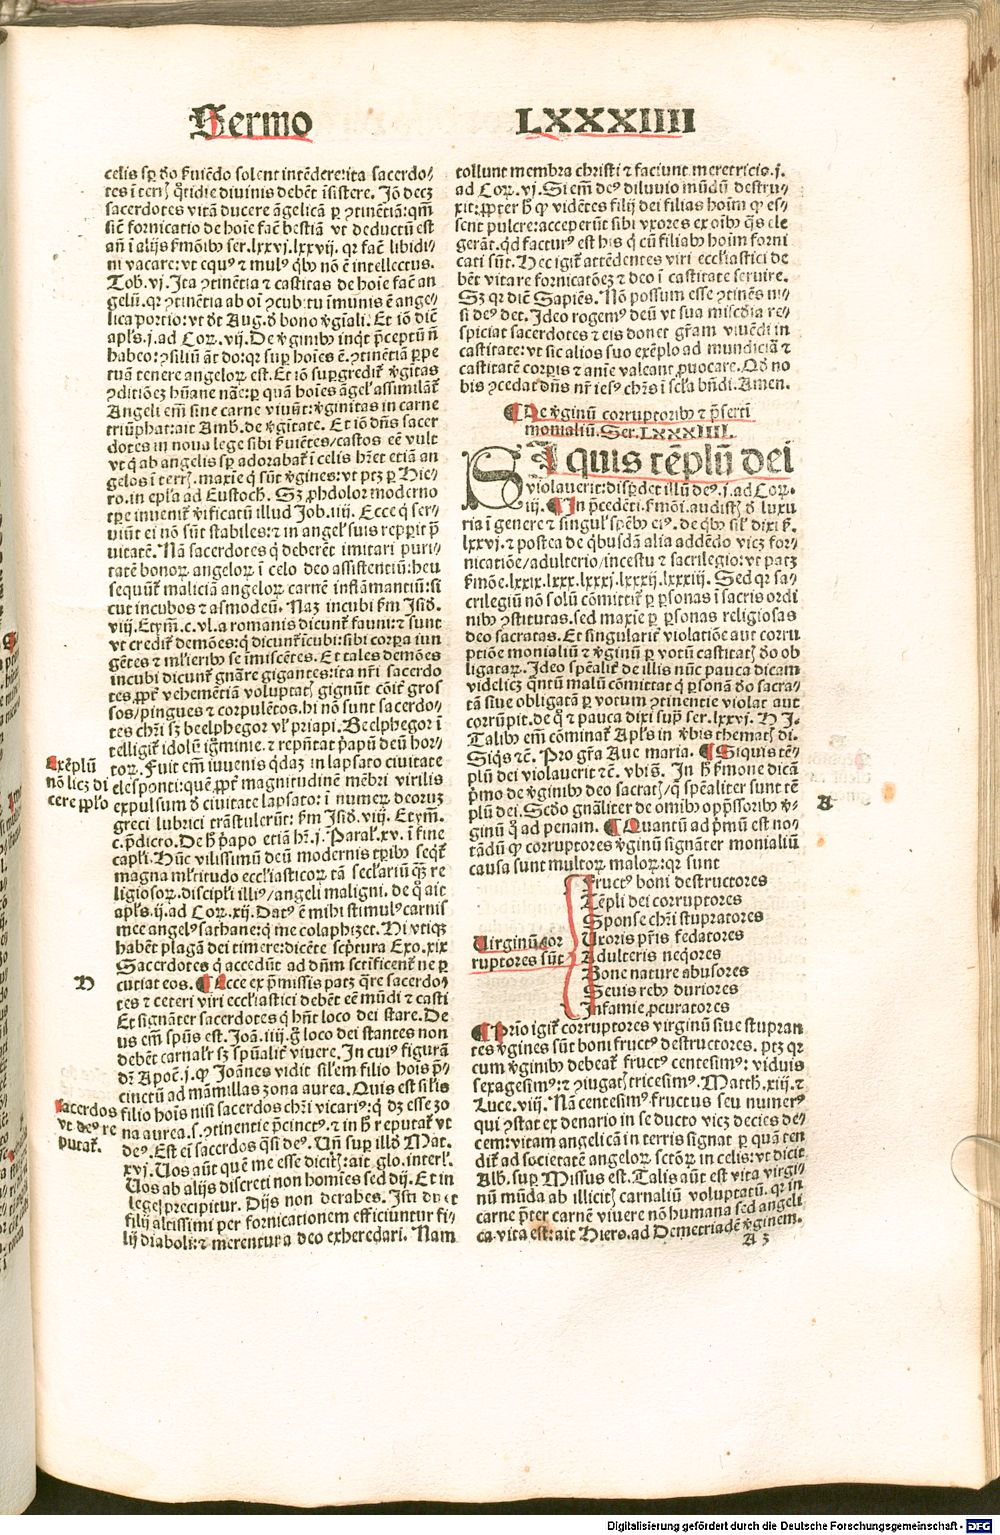 Sermo LXXXIIII
celis sꝑ deo ẜuiēdo solent intēdere: ita sacerdo/
tes ī terris q̄tidie diuinis debēt īsistere. Iō decꝫ
sacerdotes vitā ducere āgelicā ꝑ ꝯtinētiā: qm̄
sic̄ fornicatio de hoīe facit bestiā vt deductū est
an̄ ī alijs ẜmōibꝰ ser. lxxvj. lxxvij. qꝛ facit libidi/
ni vacare: vt equꝰ ⁊ mulꝰ qͥbꝰ nō ē intellectus.
Tob. vj. Ita ꝯtinētia ⁊ castitas de hoīe facit an
gelū. qꝛ ꝯtinētia ab oī ꝯcubitu īmunis ē ange/
lica portio: vt dicit Aug. de bono vͥgīali. Et iō dic̄
apl̄s. j. ad Coꝝ. vij. De vͥginibꝰ inqͥt p̄ceptū nō
habeo: ꝯsiliū aūt do: qꝛ suꝑ hoīes ē. ꝯtinētiā ꝑpe
tuā tenere angeloꝝ est. Et iō suꝑgredit̄ vͥgitas
ꝯditiōeꝫ hūane nat̄e: ꝑ quā hoīes āgelis assimilāt̄
Angeli em̄ sine carne viuūt: vͥginitas in carne
triūphat: ait Amb. de vͥgitate. Et iō dn̄s sacer
dotes in noua lege sibi ẜuiētes/castos eē vult
vt qͥ ab angelis sꝑ adorabat̄ ī celis hr̄et etiā an
gelos ī terris. maxie qͥ sūt vͥgines: vt ptꝫ ꝑ Hie/
ro. in epl̄a ad Eustoch. Sꝫ ꝓhdoloꝛ moderno
tꝑe inuenit̄ vͥificatū illud Job. iiij. Ecce qͥ ser/
uiūt ei nō sūt stabiles: ⁊ in angelꝭ suis reppīt p̄
uitatē. Nā sacerdotes qͥ deberēt imitari puri/
tatē bonoꝝ angeloꝝ ī celo deo assistentiū: heu
sequūt̄ maliciā angeloꝝ carnē inflāmantiū: si
cut incubos ⁊ asmodeū. Naꝫ incubi ẜm Isid.
viij. Etym̄. c. vl. a romanis dicunt̄ fauni: ⁊ sunt
vt credit̄ demōes: qͥ dicunt̄ īcubi: sibi corꝑa iun
gētes ⁊ mlīeribꝰ se īmiscētes. Et tales demōes
incubi dicunt̄ gn̄are gigantes: ita nr̄i sacerdo
tes ꝓpt̄ vehemētiā voluptatis gignūt cōit̄ gros
sos/pingues ⁊ corpulētos. hi nō sunt sacerdo/
tes chr̄i sꝫ beelphegor vl̓ priapi. Beelphegor ī
telligit̄ idolū ignōminie. ⁊ reputat̄ p̄apū deū hor/
toꝝ. Fuit em̄ iuuenis qͥdaꝫ in lapsato ciuitate
elesponti: quē ꝓpt̄ magnitudinē mēbri virilis
expulsum de ciuitate lapsatoꝝ: ī numeꝝ deoruꝫ
greci lubrici trāstulerūt: ẜm Isid. viij. Etym̄.
c. p̄dicto. De h̄ p̄apo etiā hr̄. j. Paral̓. xv. ī fine
capl̓i. Hūc vilissimū deū modernis tꝑibꝰ seqͥt̄
magna ml̓titudo eccl̓iasticoꝝ tā seclariū qͣꝫ re
ligiosoꝝ. discipl̓i illiꝰ/angeli maligni. de qͦ ait
apl̓s. ij. ad Coꝝ. xij. Datꝰ ē mihi stimulꝰ carnis
mee angelꝰ sathane: qͥ me colaphizet. Hi vtiqꝫ
habēt plagā dei timere: dicēte sc̓ptura Exo. xix
Sacerdotes qͥ accedūt ad dn̄m sctificent̄ ne ꝑ
cutiat eos. Ecce ex p̄missis patꝫ qͣre sacerdo/
tes ⁊ ceteri viri eccl̓iastici debēt eē mūdi ⁊ casti
Et signāter sacerdotes qͥ hn̄t loco dei stare. De
us em̄ spūs est. Joā. iiij. gͦ loco dei stantes non
debēt carnalr̓ sꝫ spūalit̄ viuere. In cuiꝰ figurā
dr̄ Apoc̄. j. ꝙ Joānes vidit sil̓em filio hoīs p̄/
cinctū ad māmillas zona aurea. Quis est sil̓is
filio hoīs nisi sacerdos chr̄i vicariꝰ: qͥ dꝫ esse zo
na aurea. s. ꝯtinentie p̄cinctꝰ. ⁊ in h̄ reputat̄ vt
deꝰ. Est ei sacerdos qͣsi deꝰ. Vn̄ suꝑ illo Mat.
xvj. Uos aūt quē me esse dicitis: ait glo. interl̓.
Uos ab alijs discreti non homīes sed dij. Et in
lege p̄recipitur. Dijs non detrahes. Isti dicti
filij altissimi per fornicationem efficiuntur fi/
lij diaboli: ⁊ merentur a deo exheredari. Nam
Exēplū
nō licꝫ di
cere ꝓplo
D
Sacerdos
vt deꝰ re
putat̄.
tollunt membra christi ⁊ faciunt meretricis. j.
ad Coꝝ. vj. Si em̄ deꝰ diluuio mūdū destru/
xit: ꝓpter h̄ ꝙ vidētes filij dei filias hoīm ꝙ es/
sent pulcre: acceperūt sibi vxores ex oībꝰ qͣs ele
gerāt. qͥd facturꝰ est his qͥ cū filiabꝰ hoīm forni
cati sūt. Hec igit̄ attēdentes viri eccl̓iastici de
bēt vitare fornicatōeꝫ ⁊ deo ī castitate seruire.
Sꝫ qꝛ dic̄ Sapiēs. Nō possum esse ꝯtinēs ni/
si deꝰ det. Ideo rogemꝰ deū vt sua mīscd̄ia re/
spiciat sacerdotes ⁊ eis donet gr̄am viuēdi in
castitate: vt sic alios suo exēplo ad mundiciā ⁊
castitatē corꝑis ⁊ anie valeant ꝓuocare. Qd̓ no
bis ꝯcedat dn̄s nr̄ iesꝰ chr̄s ī scl̓a bn̄di. Amen.
De vͥginū corruptoribꝰ ⁊ p̄serti
monialiū. Ser. LXXXIIII.
SI quis tēplū dei
violauerit: disꝑdet illū deꝰ. j. ad Coꝝ.
iij. In p̄cedēti ẜmōi. audistis de luxu
ria ī genere ⁊ singulꝭ spēbꝰ eiꝰ. de qͥbꝰ sil̓ dixi ẜ.
lxxvj. ⁊ postea de qͥbusdā alia addēdo vicꝫ for/
nicatiōe/adulterio/incestu ⁊ sacrilegio: vt patꝫ
ẜmōe. lxxix. lxxx. lxxxj. lxxxij. lxxxiij. Sed qꝛ sa/
crilegiū nō solū cōmittit̄ ꝑ ꝑsonas ī sacris ordi
nibꝰ ꝯstitutas. sed maxie ꝑ ꝑsonas religiosas
deo sacratas. Et singularit̄ violatiōe aut corru
ptiōe monialiū ⁊ vͥginū ꝑ votū castitatis deo ob
ligataꝝ. Ideo spēalit̄ de illis nūc pauca dicam
videlicꝫ qͣntū malū cōmittat qͥ ꝑsonā deo sacra/
tā siue obligatā ꝑ votum ꝯtinentie violat aut
corrūpit. de qͦ ⁊ pauca dixi supͣ ser. lxxvj. H I.
Talibꝰ em̄ cōminat̄ Apl̓s in vͥbis thematis di.
Siqͥs ⁊c̄. Pro gr̄a Aue maria. Siquis tē/
plū dei violauerit ⁊c̄. vbi s̄. In h̄ ẜmone dicā
pͥmo de vͥginibꝰ deo sacratis/qͥ spēaliter sunt tē
plū dei. Scd̓o gn̄aliter de omībꝰ opp̄ssoribꝰ vͥ/
ginū qͦ ad penam. Quantū ad pͥmū est no/
tādū ꝙ corruptores vͥginū signāter monialiū
causa sunt multoꝝ maloꝝ: qꝛ sunt
Uirginū cor
ruptores sūt
Fructꝰ boni destructores
Tēpli dei corruptores
Sponse chr̄i stupratores
Uxoris pr̄is fedatores
Adulteris neqͥores
Bone nature abusores
Seuis rebꝰ duriores
Infamie ꝓcuratores
Prīo igit̄ corruptores virginū siue stupran
tes vͥgines sūt boni fructꝰ destructores. ptꝫ qꝛ
cum vͥginibꝰ debeat̄ fructꝰ centesimꝰ: viduis
sexagesimꝰ: ⁊ ꝯiugatis tricesimꝰ. Matth. xiij. ⁊
Luce. viij. Nā centesimꝰ fructus seu numerꝰ
qui ꝯstat ex denario in se ducto vicꝫ decies de/
cem: vitam angelicā in terris signat ꝑ quā ten
dit̄ ad societatē angeloꝝ sctōꝝ in celis: vt dicit
Alb. suꝑ Missus est. Talis aūt est vita virgi/
nū mūda ab illicitis carnaliū voluptatū. qꝛ in
carne p̄ter carnē viuere nō humana sed angeli
ca vita est: ait Hiero. ad Demetriadē vͥginem.
A
A 3
Digitalisierung gefördert durch die Deutsche Forschungsgemeinschaft - DFG